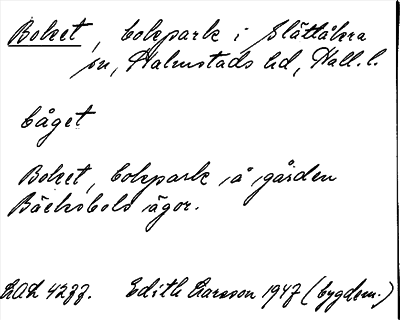 Boket, bokpark i Slättåkra
sn, Halmstads hd, Hall. l.
båget
Boket, bokpark å gården
Bäcksbols ägor.
EAL 4277. Edith Larsson 1947 (bygdem.)